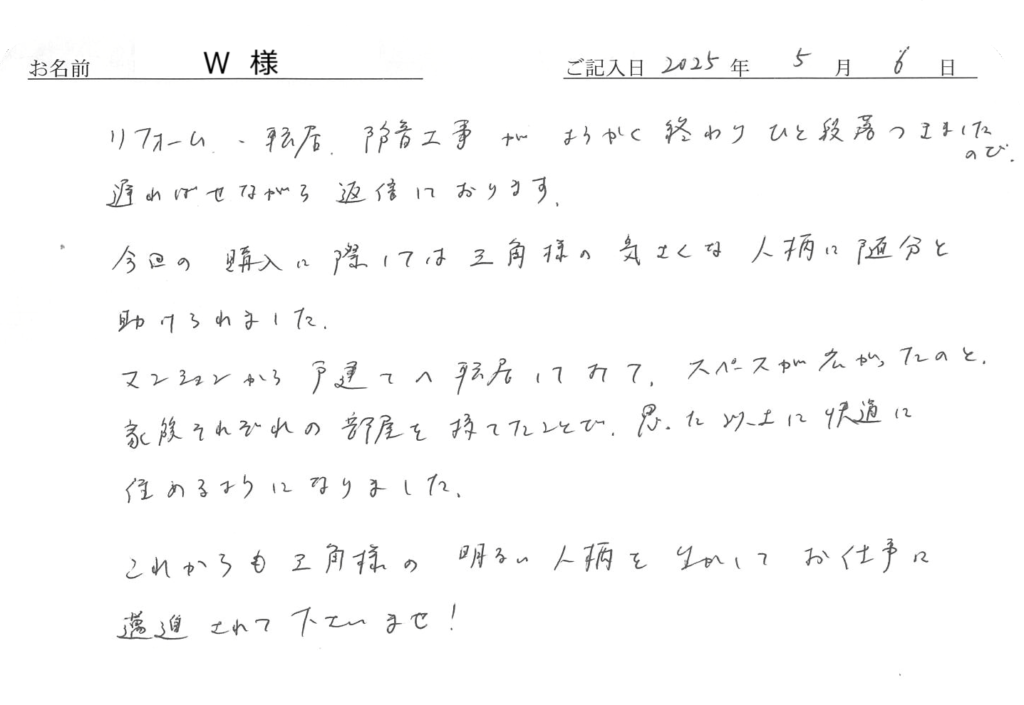 お名前 W 様 ご記入日 2025 年 5 月 6 日
リフォーム、転居、防音工事がようやく終わりひと段落つきましたので、
遅ればせながら返信しております。
今回の購入に際しては三角様の気さくな人柄に随分と
助けられました。
マンションから戸建てへ転居してみて、スペースが広がったのと、
家族それぞれの部屋を持てたことで、思った以上に快適に
住めるようになりました。
これからも三角様の明るい人柄を生かしてお仕事に
邁進されて下さいませ!